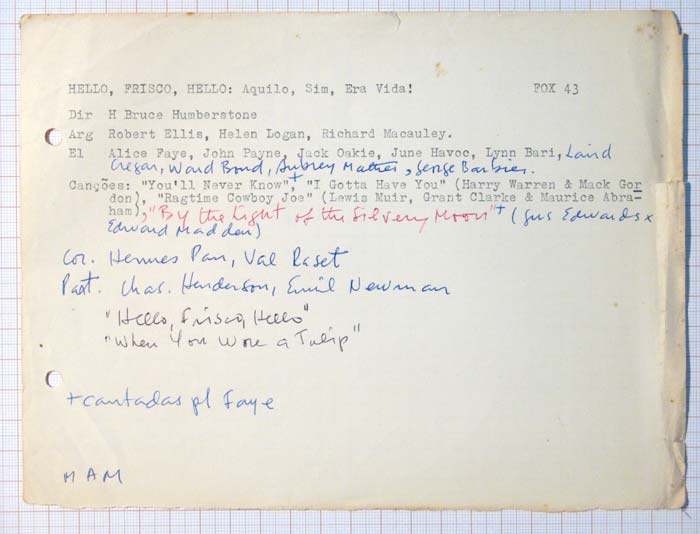 HELLO, FRISCO, HELLO: Aquilo, Sim, Era Vida! FOX 43
Dir H Bruce Humberstone
Arg Robert Ellis, Helen Logan, Richard Macauley.
El Alice Faye, John Payne, Jack Oakie, June Havoc, Lynn Bari, Laird
Cregar, Ward Bond, Aubrey Mather, George Barbier.
Canções: "You'll Never Know"+, "I Gotta Have You" (Harry Warren & Mack Gor
don), "Ragtime Cowboy Joe" (Lewis Muir, Grant Clarke & Maurice Abra-
ham), "By the Light of the Silvery Moon"+ (Gus Edwards x
Edward Madden)
Cor. Hermes Pan, Val Raset
Part. Chas. Henderson, Emil Newman
"Hello, Frisco, Hello"
"When You Wore a Tulip"
+cantadas pl Faye
MAM